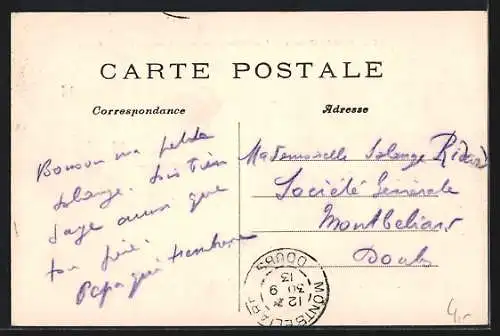 CARTE POSTALE
Correspondance
Adresse
Bonsoir ma petite
Solange. Sois bien
sage ainsi que
ton frère.
Papa qui t'embrasse
Mademoiselle Solange
Société Générale
Montbeliard
Doubs
MONTBELIARD DOUBS
12 30 9 13